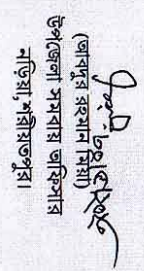 (আবদুর রহমান মিয়া)
উপজেলা সমবায় অফিসার
নড়িয়া, শরিয়তপুর।